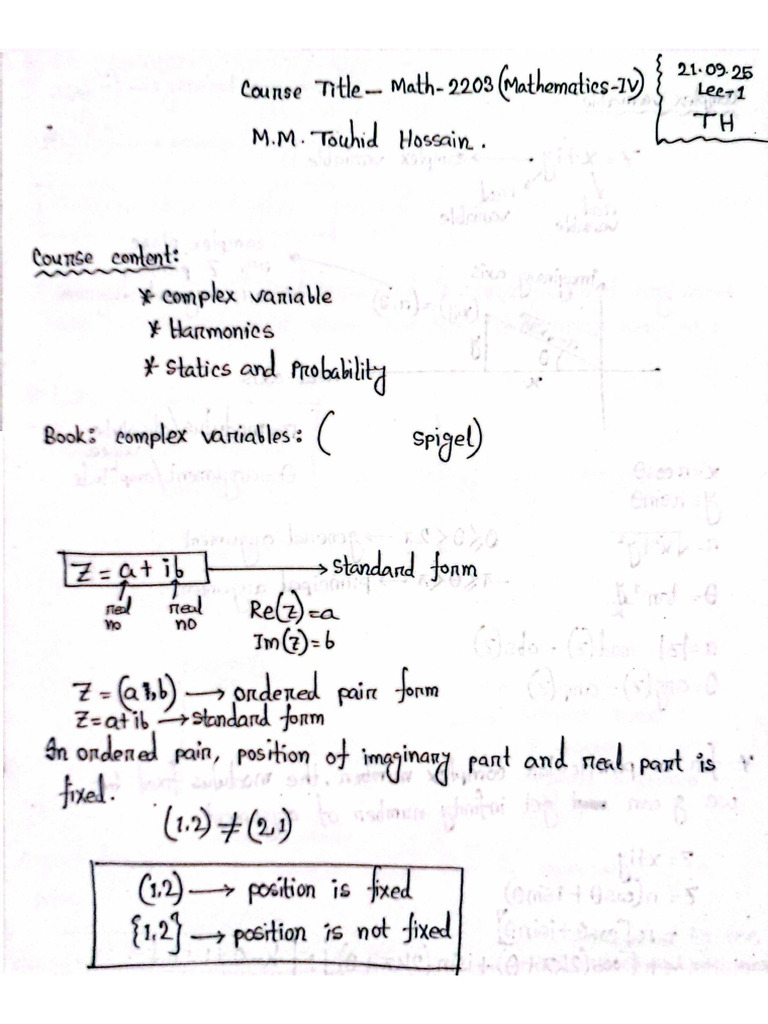 Course Title - Math-2203 (Mathematics-IV)
21.09.25
Lec-1
TH
M.M. Touhid Hossain.
Course content:
* complex variable
* Harmonics
* Statics and Probability
Book: complex variables: ( Spigel)
Z = a + ib → standard form
real no real no
Re(z) = a
Im(z) = b
Z = (a,b) → ordered pair form
Z = a+ib → standard form
In ordered pair, position of imaginary part and real part is
fixed.
(1,2) ≠ (2,1)
(1,2) → position is fixed
{1,2} → position is not fixed